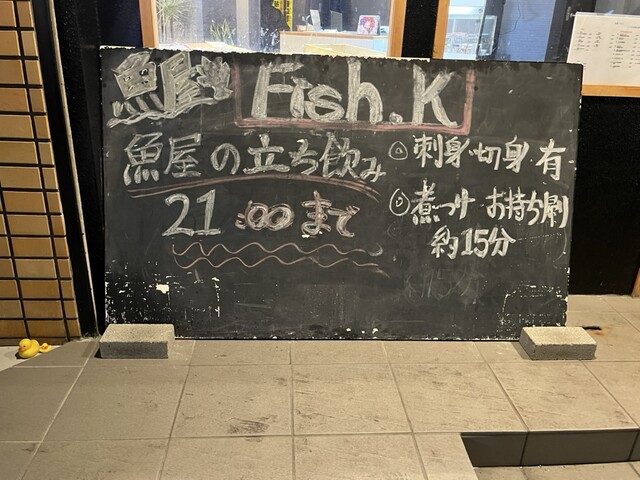 魚屋 Fish.K
魚屋の立ち飲み
21:00まで
◎刺身・切身・有
◎煮つけ お持ち帰り
約15分